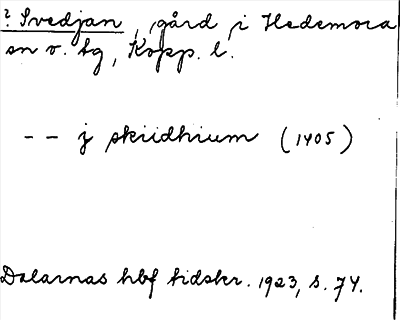 ? Svedjan, gård i Hedemora
sn o. tg, Kopp. l.
- - j skiidhium (1405)
Dalarnas hbf tidskr. 1923, s. 74.